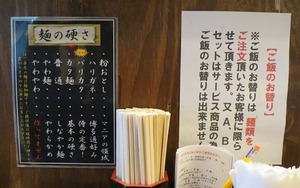 麺の硬さ
・粉おとし
・ハリガネ
・バリカタ
・カタ麺
・普通
・やわ麺
・やわやわ
マニアの領域
博多通好み
侍の定番!
基本の硬さ
しなやか麺
【ご飯のお替り】
※ご飯のお替りは麺類を
ご注文頂いたお客様に限ら
せて頂きます。又、A、B
セットはサービス商品の為
ご飯のお替りは出来ません